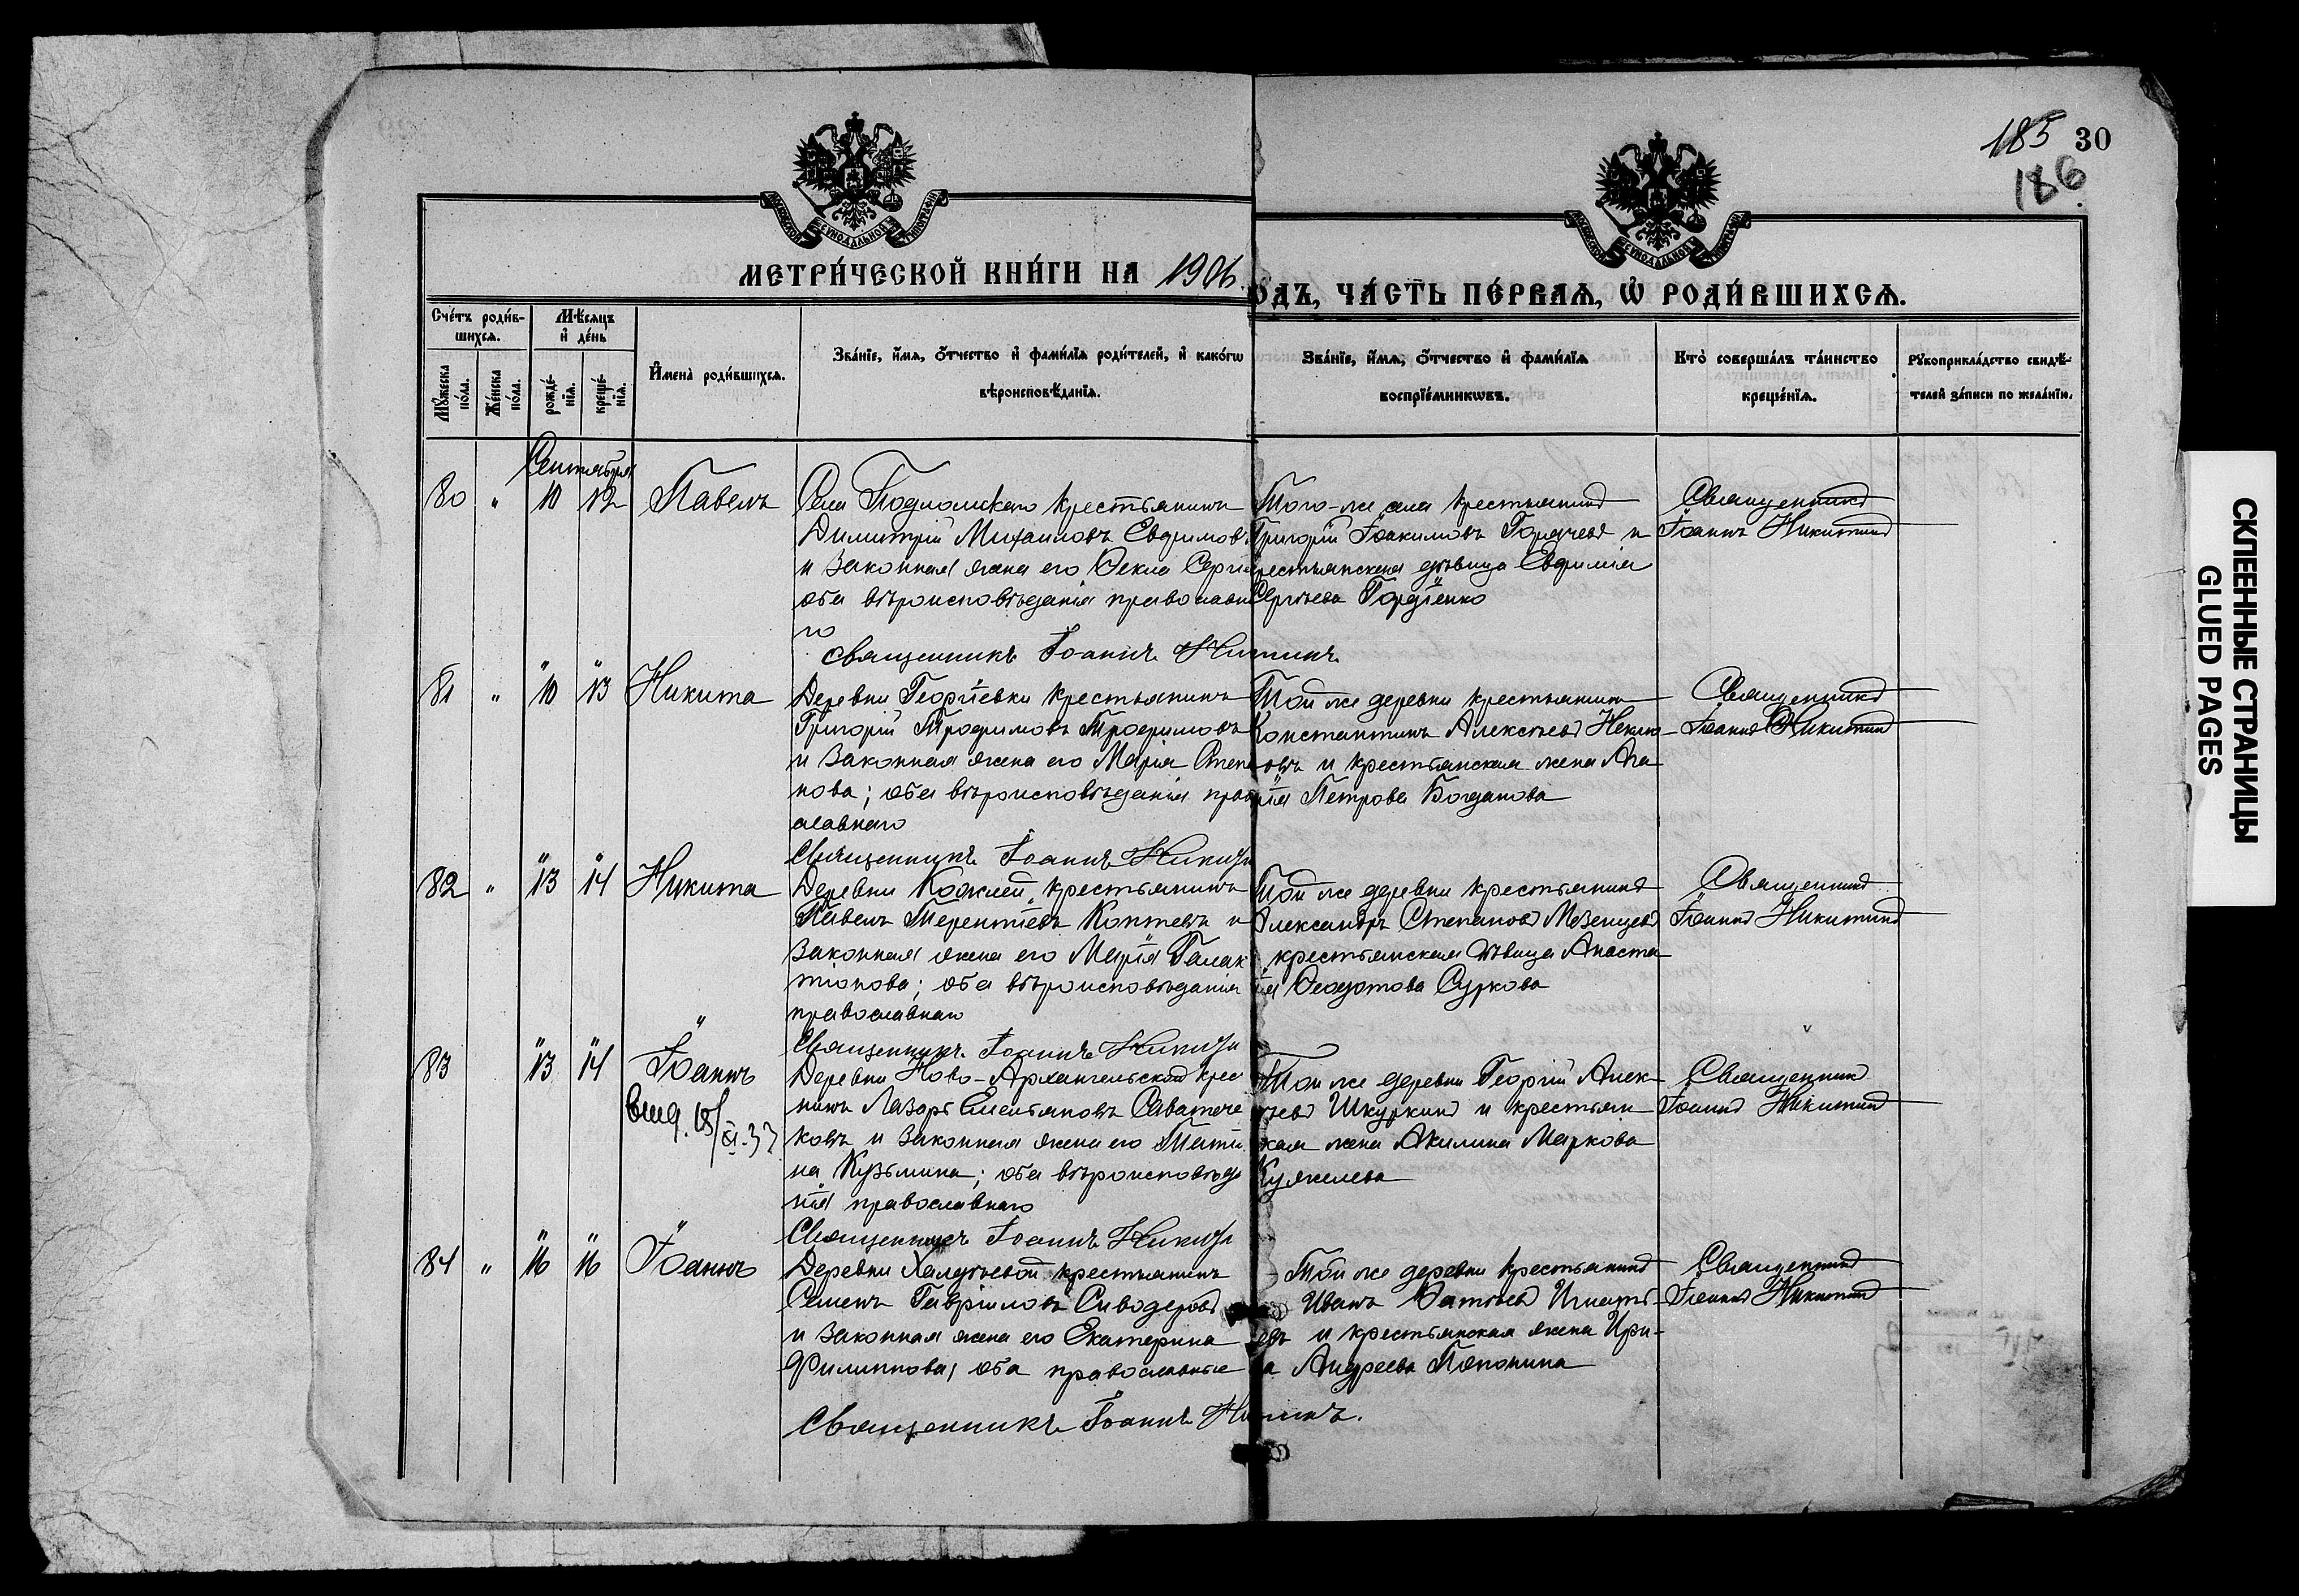 185 30
186
МОСКОВСКОЙ СѴНОДАЛЬНОЙ ТИПОГРАФІИ
МОСКОВСКОЙ СѴНОДАЛЬНОЙ ТИПОГРАФІИ
МЕТРИ́ЧЕСКОЙ КНИ́ГИ НА 1906
ОДЪ, ЧА́СТЬ ПЕ́РВАѦ, Ѡ҆ РОДИ́ВШИХСѦ.
Сче́тъ роди́в-
шихсѧ.
Мꙋ́жеска по́ла.
Же́нска по́ла.
Мѣ́сѧцъ
и҆ де́нь
рожде́-
нїѧ.
креще́-
нїѧ.
И҆мена̀ роди́вшихсѧ.
Зва́нїе, и҆́мѧ, ѻ҆́тчество и҆ фами́лїѧ роди́телей, и҆ како́гѡ
вѣроисповѣ́данїѧ.
Зва́нїе, и҆́мѧ, ѻ҆́тчество и҆ фами́лїѧ
воспрїе́мникѡвъ.
Кто̀ соверша́лъ та́инство
креще́нїѧ.
Рꙋкоприкла́дство свидѣ́-
телей за́писи по жела́нїю.
Сентября
80 " 10 12 Павелъ
Села Крестьянинъ
Димитрій Михаиловъ Евфимовъ
и законная жена его Ѳекла Серги
оба вѣроисповѣданія православн
го
Священникъ Іоаннъ Никитинъ
Того-же села крестьянинъ
Григорій Іоакимовъ Горячевъ и
крестьянская дѣвица Евфимія
Сергѣева Гордіенко
Священникъ
Іоаннъ Никитинъ
81 " " 10 " 13 Никита
Деревни Георгіевки крестьянинъ
Григорій Трофимовъ Трофимовъ
и законная жена его Марія Степа
нова; оба вѣроисповѣданія прав
славнаго
Священникъ Іоаннъ Никити
Той же деревни крестьянинъ
Константинъ Алексѣевъ Неклю-
овъ и крестьянская жена Ага
рія Петрова Богданова
Священникъ
Іоаннъ Никитинъ
82 " " 13 " 14 Никита
Деревни крестьянинъ
Павелъ Терентіевъ Коптевъ и
законная жена его Марія Галак
тіонова; оба вѣроисповѣданія
православнаго
Священникъ Іоаннъ Никити
Той же деревни крестьянинъ
Александръ Степановъ Мезенцевъ
крестьянская дѣвица Анаста
ія Ѳеодотова Суркова
Священникъ
Іоаннъ Никитинъ
83 " 13 " 14 Іоаннъ
выд. 18/XI.33
Деревни Ново-Архангельской крес
нинъ Лазарь Емельяновъ Саватече
ковъ и законная жена его Татья
на Кузьмина; оба вѣроисповѣда
нія православнаго
Священникъ Іоаннъ Никити
Той же деревни Георгій Алек-
ѣевъ Шкуркинъ и крестьян-
ская жена Акилина Маркова
Кужелева
Священник
Іоаннъ Никитинъ
84 " " 16 " 16 Іоаннъ
Деревни крестьянинъ
Семенъ Гавріиловъ Сиводеровъ
и законная жена его Екатерина
Филиппова, оба православные
Священникъ Іоаннъ Никитинъ.
Той же деревни крестьянинъ
Иванъ Игнать-
евъ и крестьянская жена Ири-
на Андреева Пономина
Священникъ
Іоаннъ Никитинъ
СКЛЕЕННЫЕ СТРАНИЦЫ
GLUED PAGES